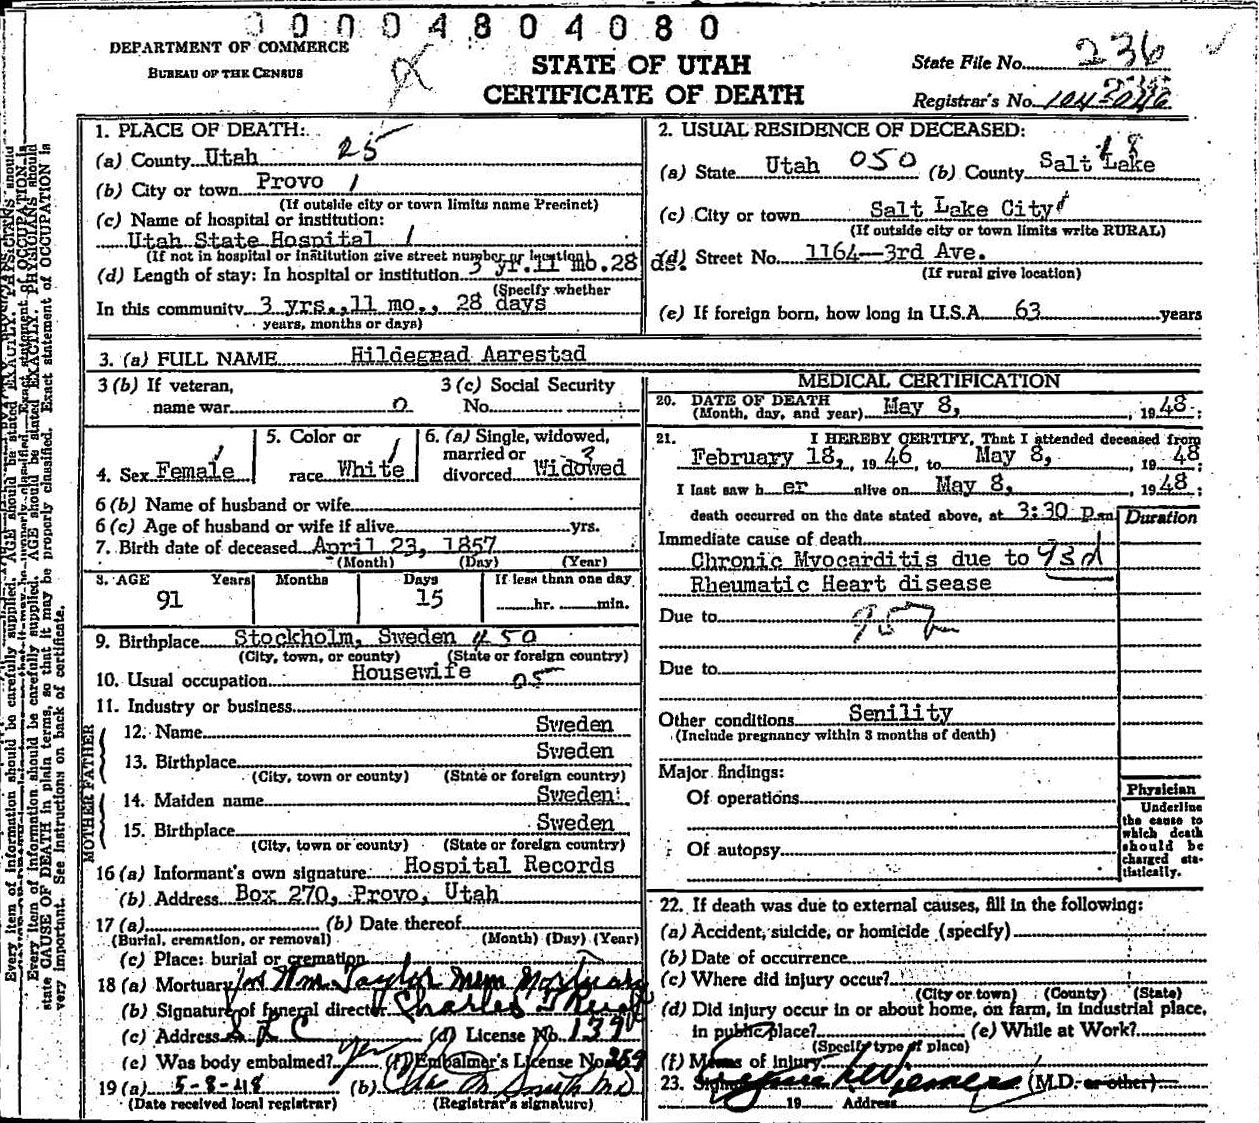 00004804080
DEPARTMENT OF COMMERCE
BUREAU OF THE CENSUS
STATE OF UTAH
CERTIFICATE OF DEATH
State File No. 236
Registrar's No.
Every item of information should be carefully supplied. AGE should be stated EXACTLY. PHYSICIANS should
state CAUSE OF DEATH in plain terms, so that it may be properly classified. Exact statement of OCCUPATION is
very important. See instructions on back of certificate.
1. PLACE OF DEATH:
(a) County Utah 25
(b) City or town Provo 1
(If outside city or town limits name Precinct)
(c) Name of hospital or institution:
Utah State Hospital 1
(If not in hospital or institution give street number or location)
(d) Length of stay: In hospital or institution 3 yr.11 mo.28 ds.
(Specify whether
In this community 3 yrs.,11 mo., 28 days
years, months or days)
2. USUAL RESIDENCE OF DECEASED:
(a) State Utah 050 (b) County Salt Lake 18
(c) City or town Salt Lake City 1
(If outside city or town limits write RURAL)
(d) Street No. 1164--3rd Ave.
(If rural give location)
(e) If foreign born, how long in U.S.A. 63 years
3. (a) FULL NAME Hildegnad Aarestad
3 (b) If veteran,
name war 0
3 (c) Social Security
No.
4. Sex Female 1
5. Color or
race White 1
6. (a) Single, widowed,
married or
divorced Widowed 3
6 (b) Name of husband or wife
6 (c) Age of husband or wife if alive yrs.
7. Birth date of deceased April 23, 1857
(Month) (Day) (Year)
8. AGE Years Months Days If less than one day
91 15 hr. min.
9. Birthplace Stockholm, Sweden 450
(City, town, or county) (State or foreign country)
10. Usual occupation Housewife 05
11. Industry or business
FATHER
12. Name Sweden
13. Birthplace Sweden
(City, town or county) (State or foreign country)
MOTHER
14. Maiden name Sweden
15. Birthplace Sweden
(City, town or county) (State or foreign country)
16 (a) Informant's own signature Hospital Records
(b) Address Box 270, Provo, Utah
17 (a) (b) Date thereof
(Burial, cremation, or removal) (Month) (Day) (Year)
(c) Place: burial or cremation
18 (a) Mortuary Wm Taylor Mem Mortuary
(b) Signature of funeral director Charles
(c) Address S L C (d) License No. 139
(e) Was body embalmed? yes (f) Embalmer's License No. 259
19 (a) 5-8-48 (b) Chas M Smith MD
(Date received local registrar) (Registrar's signature)
MEDICAL CERTIFICATION
20. DATE OF DEATH
(Month, day, and year) May 8, , 1948;
21. I HEREBY CERTIFY, That I attended deceased from
February 18, , 1946, to May 8, , 1948
I last saw h er alive on May 8, , 1948;
death occurred on the date stated above, at 3:30 p.m.
Duration
Immediate cause of death
Chronic Myocarditis due to 93d
Rheumatic Heart disease
Due to
Due to
Other conditions Senility
(Include pregnancy within 3 months of death)
Major findings:
Of operations
Of autopsy
Physician
Underline
the cause to
which death
should be
charged sta-
tistically.
22. If death was due to external causes, fill in the following:
(a) Accident, suicide, or homicide (specify)
(b) Date of occurrence
(c) Where did injury occur?
(City or town) (County) (State)
(d) Did injury occur in or about home, on farm, in industrial place,
in public place? (e) While at Work?
(Specify type of place)
(f) Means of injury
23. Signed (M.D. or other)
19 Address